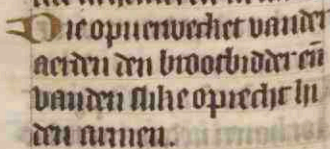 Die opuerwecket vander
aerden den brootbidder eñ
vanden slike oprecht hi
den armen.